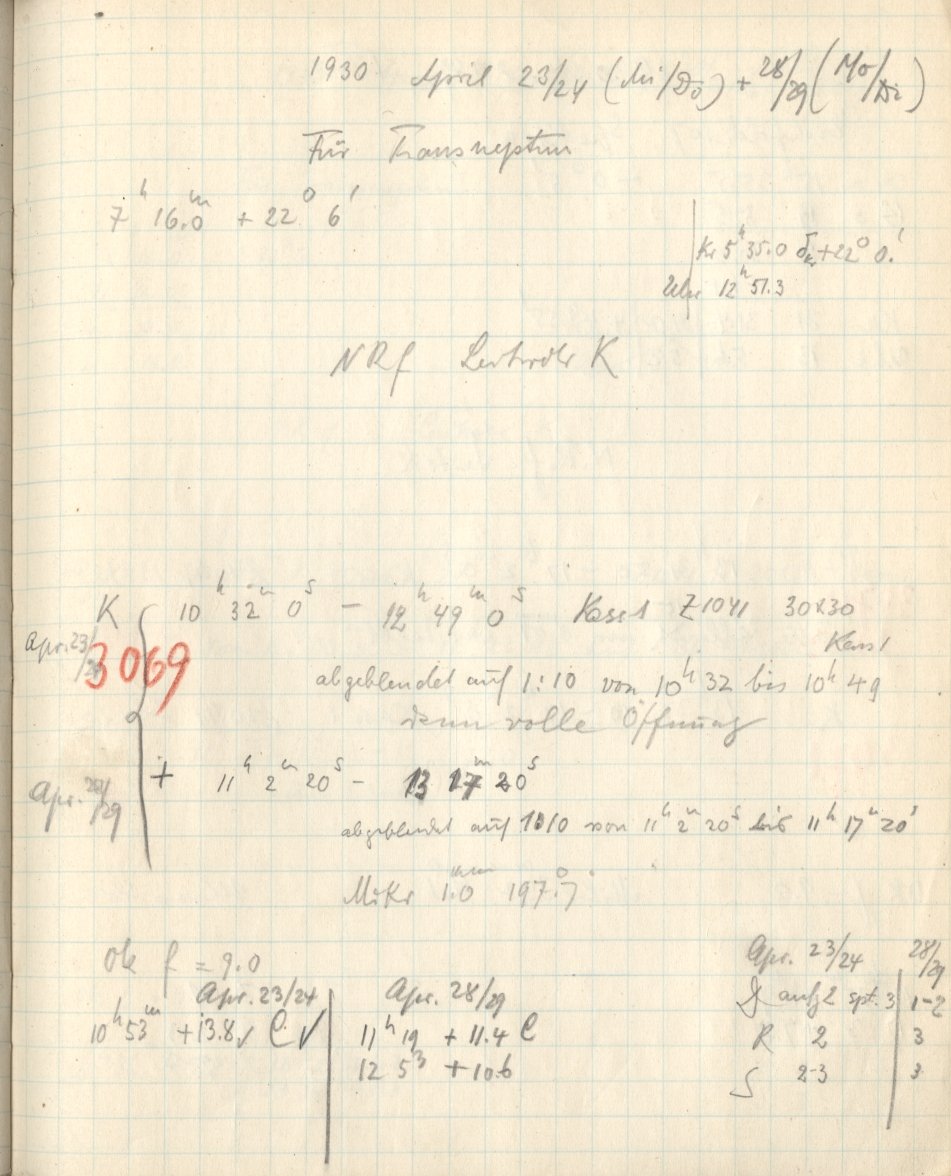 1930 April 23/24 (Mi/Do) + 28/29 (Mo/Di)
Für Transneptun
7h 16.m0 + 22° 6'
Kr 5h 35.0 δKr +22° 0.'
Uhr 12h 51.3
NRf K
K 10h 32m 0s – 12h 49m 0s Kass 1 Z1041 30x30
Apr. 23/24 3069
Kass 1
abgeblendet auf 1:10 von 10h 32 bis 10h 49
dann volle Öffnung
Apr. 28/29 + 11h 2m 20s – 13 17m 20s
abgeblendet auf 1:10 von 11h 2m 20s bis 11h 17m 20s
Mikr 1.0mm 197.°7
Ok f = 9.0
Apr. 23/24
10h 53m +13.8 C
Apr. 28/29
11h 19 + 11.4 C
12 53 + 10.6
Apr. 23/24 28/29
aufg 2 spt. 3 1-2
R 2 3
S 2-3 3